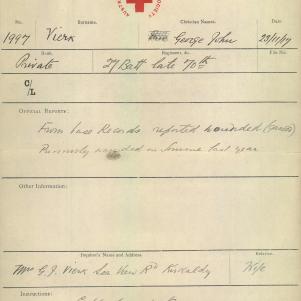 No. Surname. Christian Names.
1997 Vierk George John 23/11/17
Rank. Regiment, &c. File No.
Private 27 Batt late 70th
C/L
OFFICIAL REPORTS:
From base Records reported wounded
Previously wounded in Somme last year
Other Information:
Inquirer's Name and Address. Relative.
Mrs G. J. Vierk Sea View Rd Kirkcaldy Wife
Instructions: